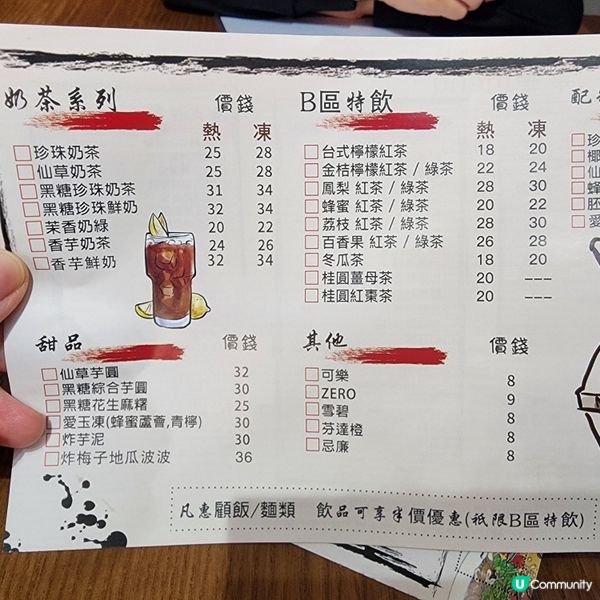 奶茶系列 價錢
熱 凍
珍珠奶茶 25 28
仙草奶茶 25 28
黑糖珍珠奶茶 31 34
黑糖珍珠鮮奶 32 34
茉香奶綠 20 22
香芋奶茶 24 26
香芋鮮奶 32 34
B區特飲 價錢
熱 凍
台式檸檬紅茶 18 20
金桔檸檬紅茶 / 綠茶 22 24
鳳梨 紅茶 / 綠茶 28 30
蜂蜜 紅茶 / 綠茶 20 22
荔枝 紅茶 / 綠茶 28 30
百香果 紅茶 / 綠茶 26 28
冬瓜茶 18 20
桂圓薑母茶 20 ---
桂圓紅棗茶 20 ---
甜品 價錢
仙草芋圓 32
黑糖綜合芋圓 30
黑糖花生麻糬 25
愛玉凍(蜂蜜蘆薈,青檸) 30
炸芋泥 30
炸梅子地瓜波波 36
其他 價錢
可樂 8
ZERO 9
雪碧 8
芬達橙 8
忌廉 8
配
珍
椰
仙
蜂
胚
愛
凡惠顧飯/麵類 飲品可享半價優惠(祇限B區特飲)
U Community